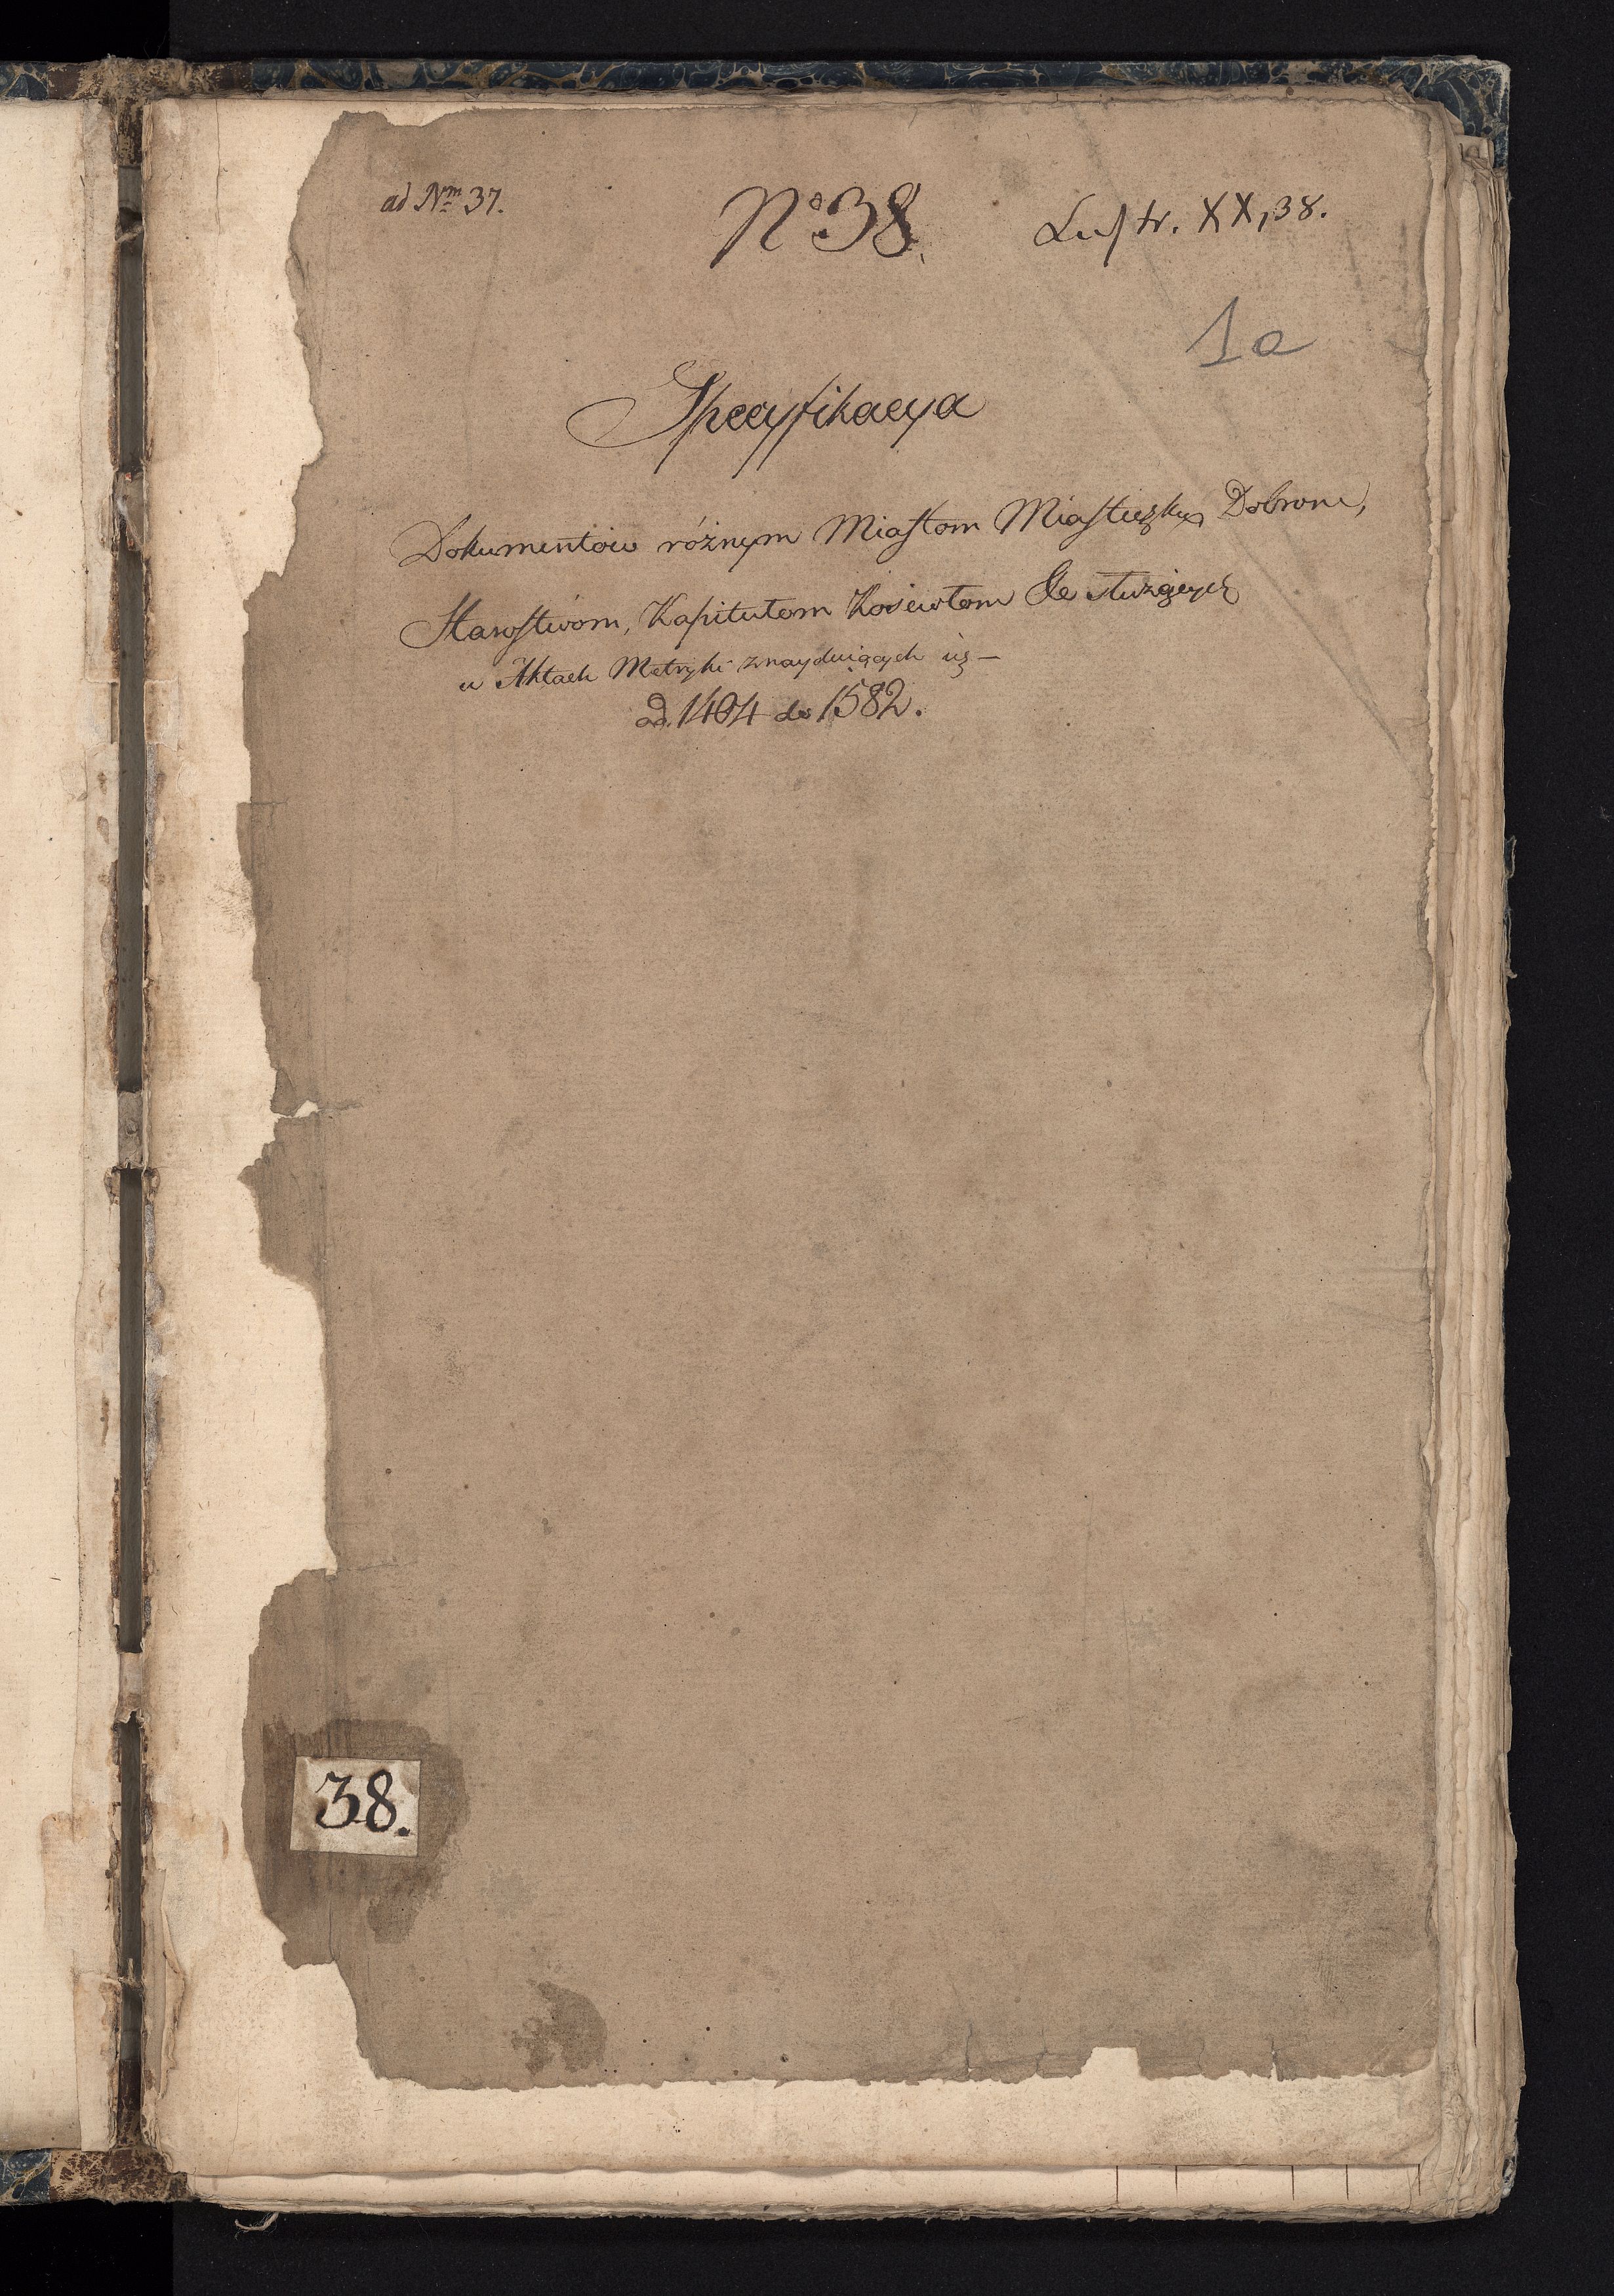 ad Nrm 37.
No 38.
Lustr. XX, 38.
1a
Specyfikacya
Dokumentów róznym Miastom Miasteczkom Dobrom,
Starostwom, Kapitułom Kościołom &c służących
w Aktach Metryki znayduiących się —
od. 1404 do 1582.
38.